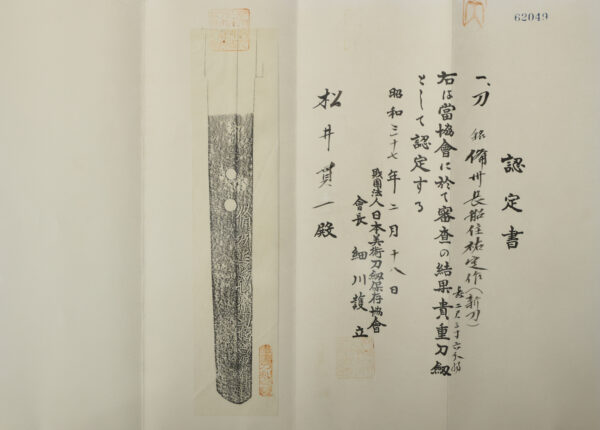 62049
認定書
一、刀 銘 備州長船住祐定作(新刀)
右は當協會に於て審査の結果貴重刀劔
として認定する
昭和三十七年二月十八日
財團法人日本美術刀劔保存協會
會長 細川護立
松井貫一殿